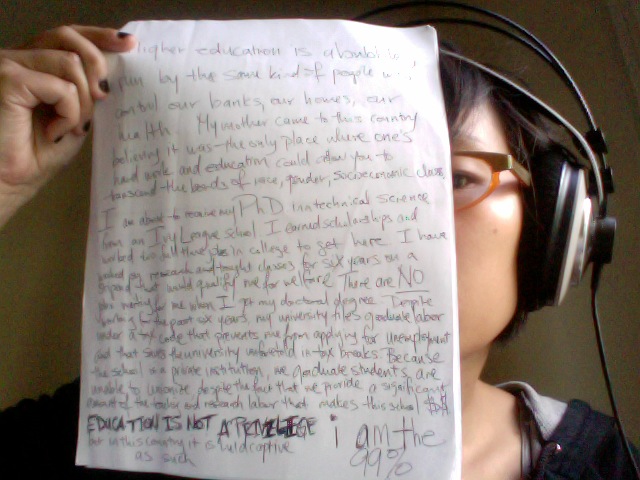 Higher education is a
run by the same kind of people
control our banks, our homes, our
health My mother came to this country
believing it was the only place where one's
hard work and education could allow you to
transcend the bonds of race, gender, socioeconomic class.
I am about to receive my PhD in a technical science
from an Ivy League school I earned scholarships and
worked two full time jobs in college to get here I have
and taught classes for six years on a
stipend that would qualify me for welfare There are NO
jobs waiting for me when I get my doctoral degree. Despite
the past six years, my university files graduate labor
under a tax code that prevents me from applying for unemployment
and that saves the university untold in tax breaks. Because
the school is a private institution, we graduate students are
unable to unionize despite the fact that we provide a significant
amount of the and research labor that makes this school
EDUCATION IS NOT A PRIVILEGE
but in this country it is held captive
as such
i am the
99%